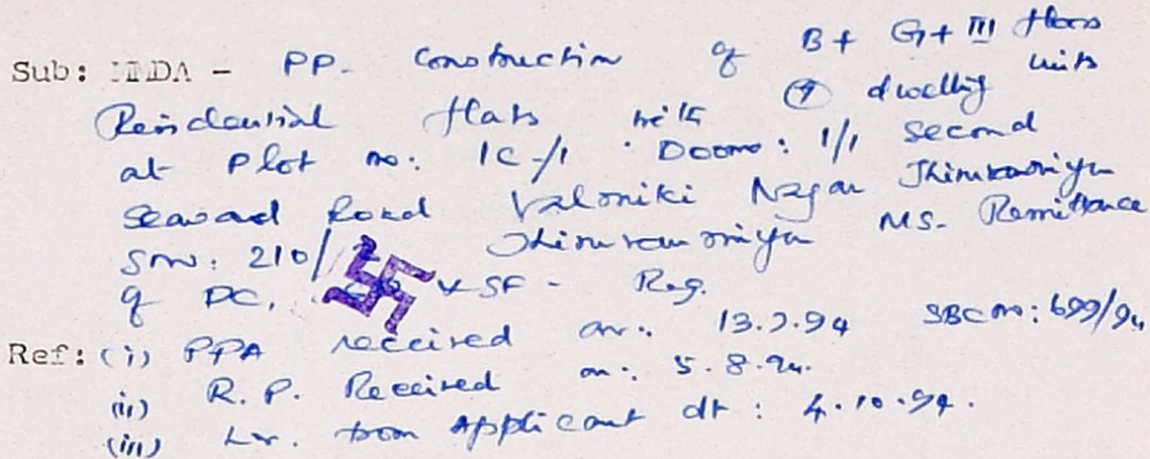 Sub: MMDA - PP. Construction of B+ G+ III floors
Residential flats with 7 dwelling units
at Plot no: 1C-/1 Doorno: 1/1 Second
Seaward Road Valmiki Nagar Thiruvanmiyur
Sno: 210/ Thiruvanmiyur MS. Remittance
of DC, & SF - Reg.
Ref: (i) PPA received on: 13.7.94 SBC no: 699/94
(ii) R. P. Received on: 5.8.94.
(iii) Lr. from Applicant dt : 4.10.94.